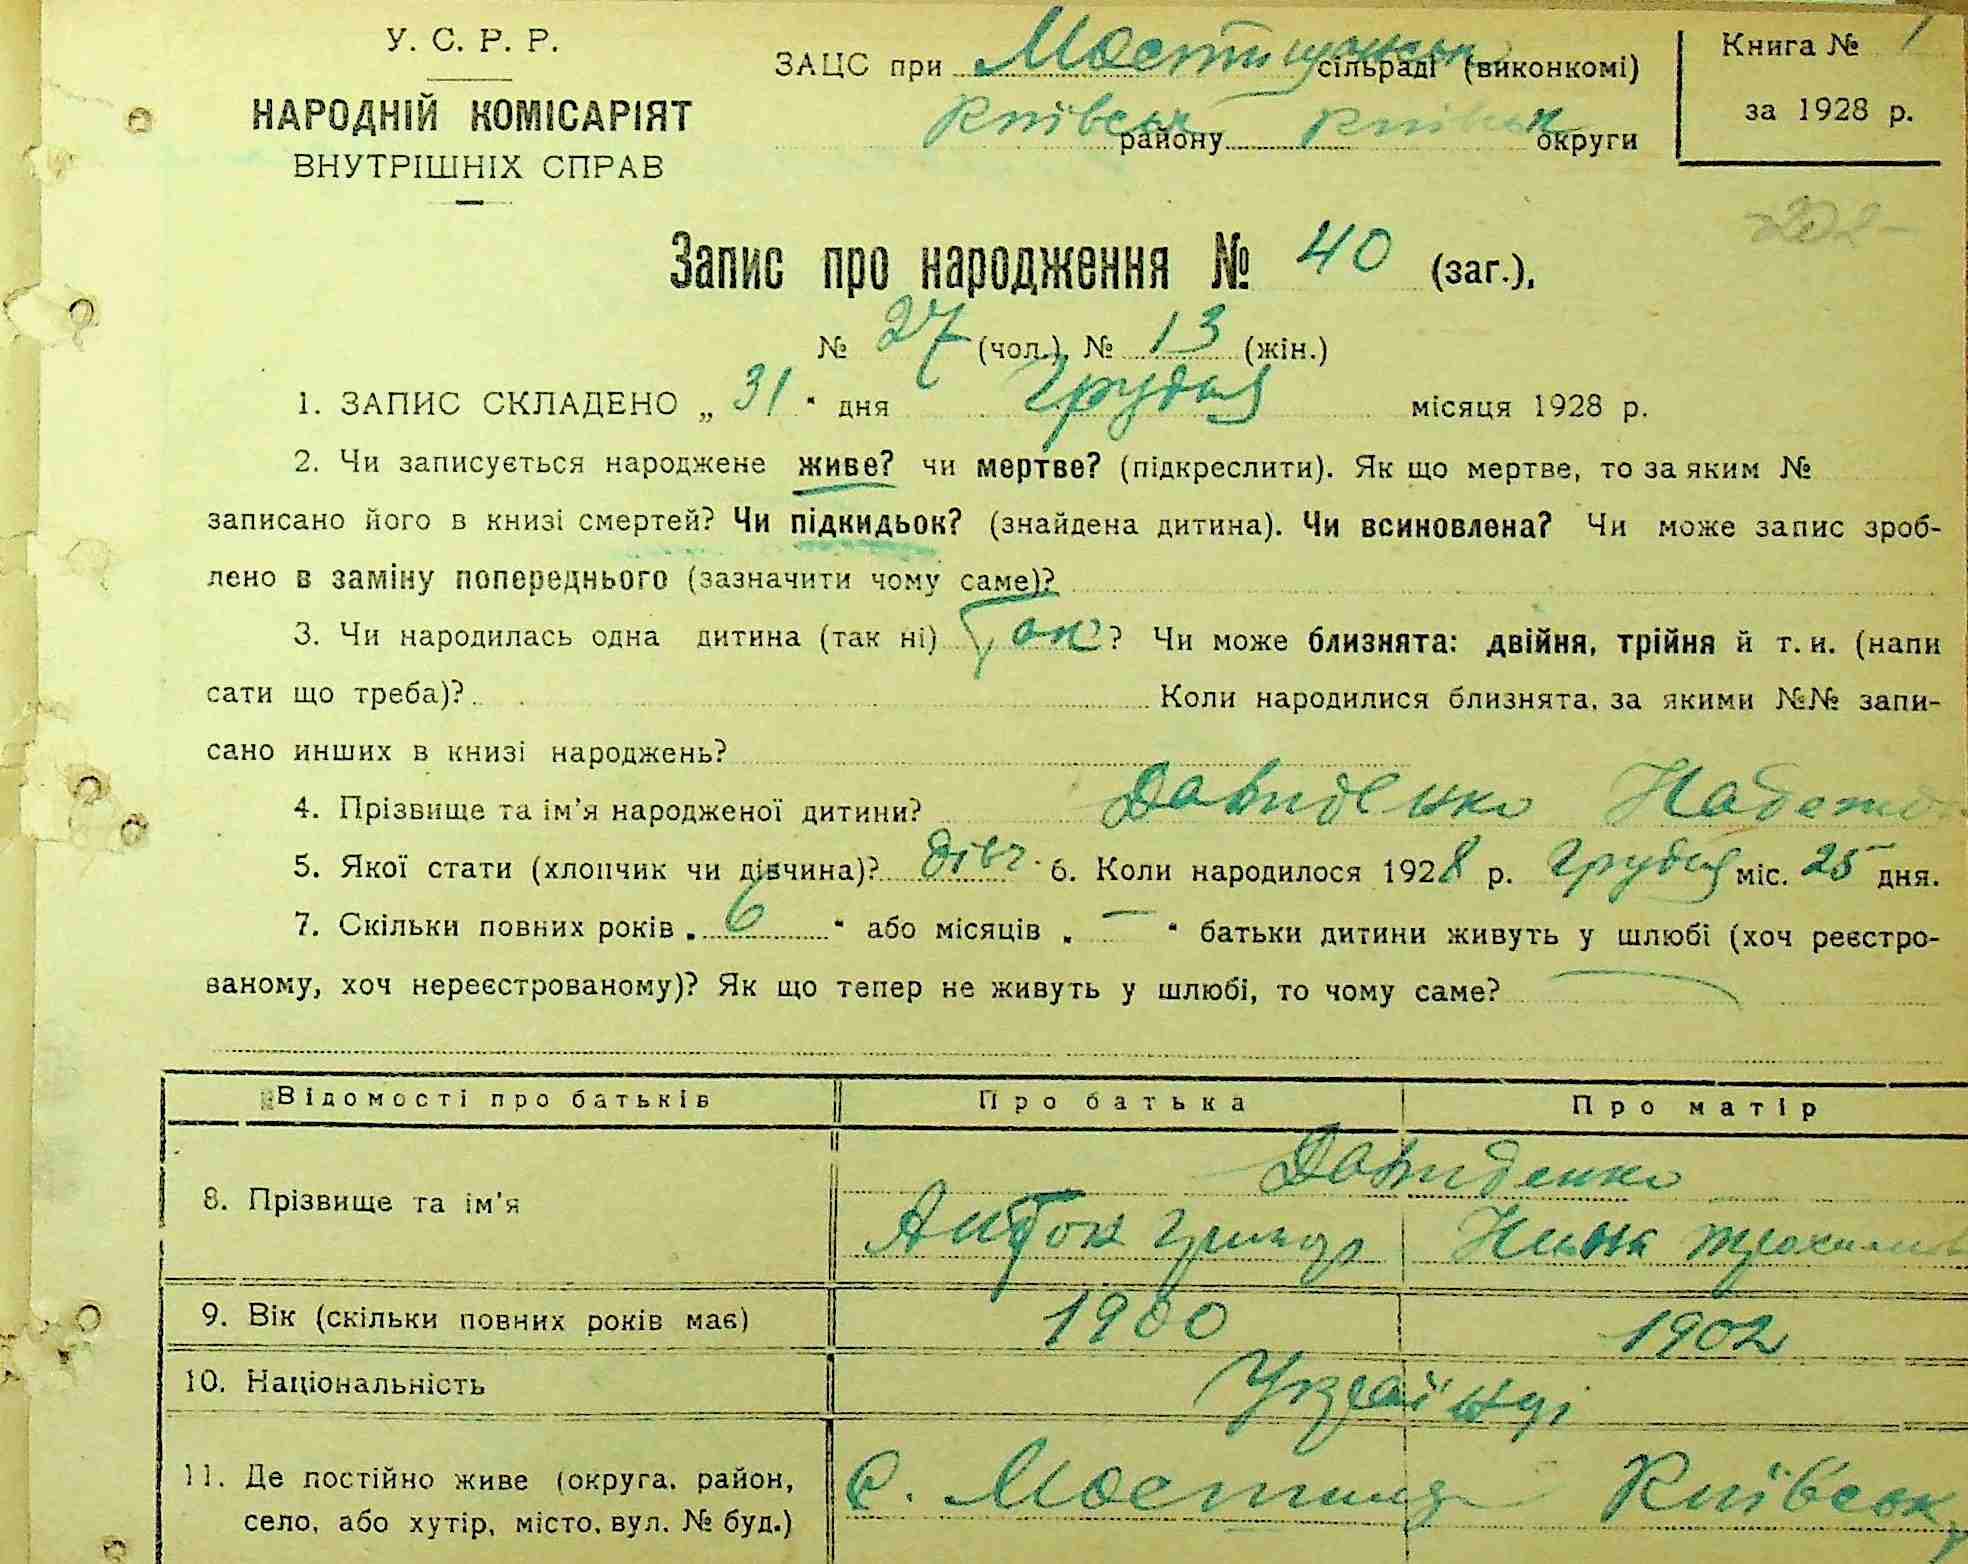 У. С. Р. Р.
НАРОДНІЙ КОМІСАРІЯТ
ВНУТРІШНІХ СПРАВ
ЗАЦС при Мостищанськ сільраді (виконкомі)
Київськ району Київськ округи
Книга № 1
за 1928 р.
202
Запис про народження № 40 (заг.),
№ 27 (чол.) № 13 (жін.)
1. ЗАПИС СКЛАДЕНО „ 31 " дня Грудня місяця 1928 р.
2. Чи записується народжене живе? чи мертве? (підкреслити). Як що мертве, то за яким №
записано його в книзі смертей? Чи підкидьок? (знайдена дитина). Чи всиновлена? Чи може запис зроб-
лено в заміну попереднього (зазначити чому саме)?
3. Чи народилась одна дитина (так ні) Так ? Чи може близнята: двійня, трійня й т. и. (напи
сати що треба)? Коли народилися близнята, за якими №№ запи-
сано инших в книзі народжень?
4. Прізвище та ім'я народженої дитини? Давиденко Надежд
5. Якої стати (хлопчик чи дівчина)? дівч. 6. Коли народилося 1928 р. Грудня міс. 25 дня.
7. Скільки повних років „ 6 " або місяців „ — " батьки дитини живуть у шлюбі (хоч реєстро-
ваному, хоч нереєстрованому)? Як що тепер не живуть у шлюбі, то чому саме?
Відомості про батьків Про батька Про матір
8. Прізвище та ім'я Давиденко
Антон Нина
9. Вік (скільки повних років має) 1900 1902
10. Національність Українці
11. Де постійно живе (округа, район, с. Мостище Київськ
село, або хутір, місто, вул. № буд.)